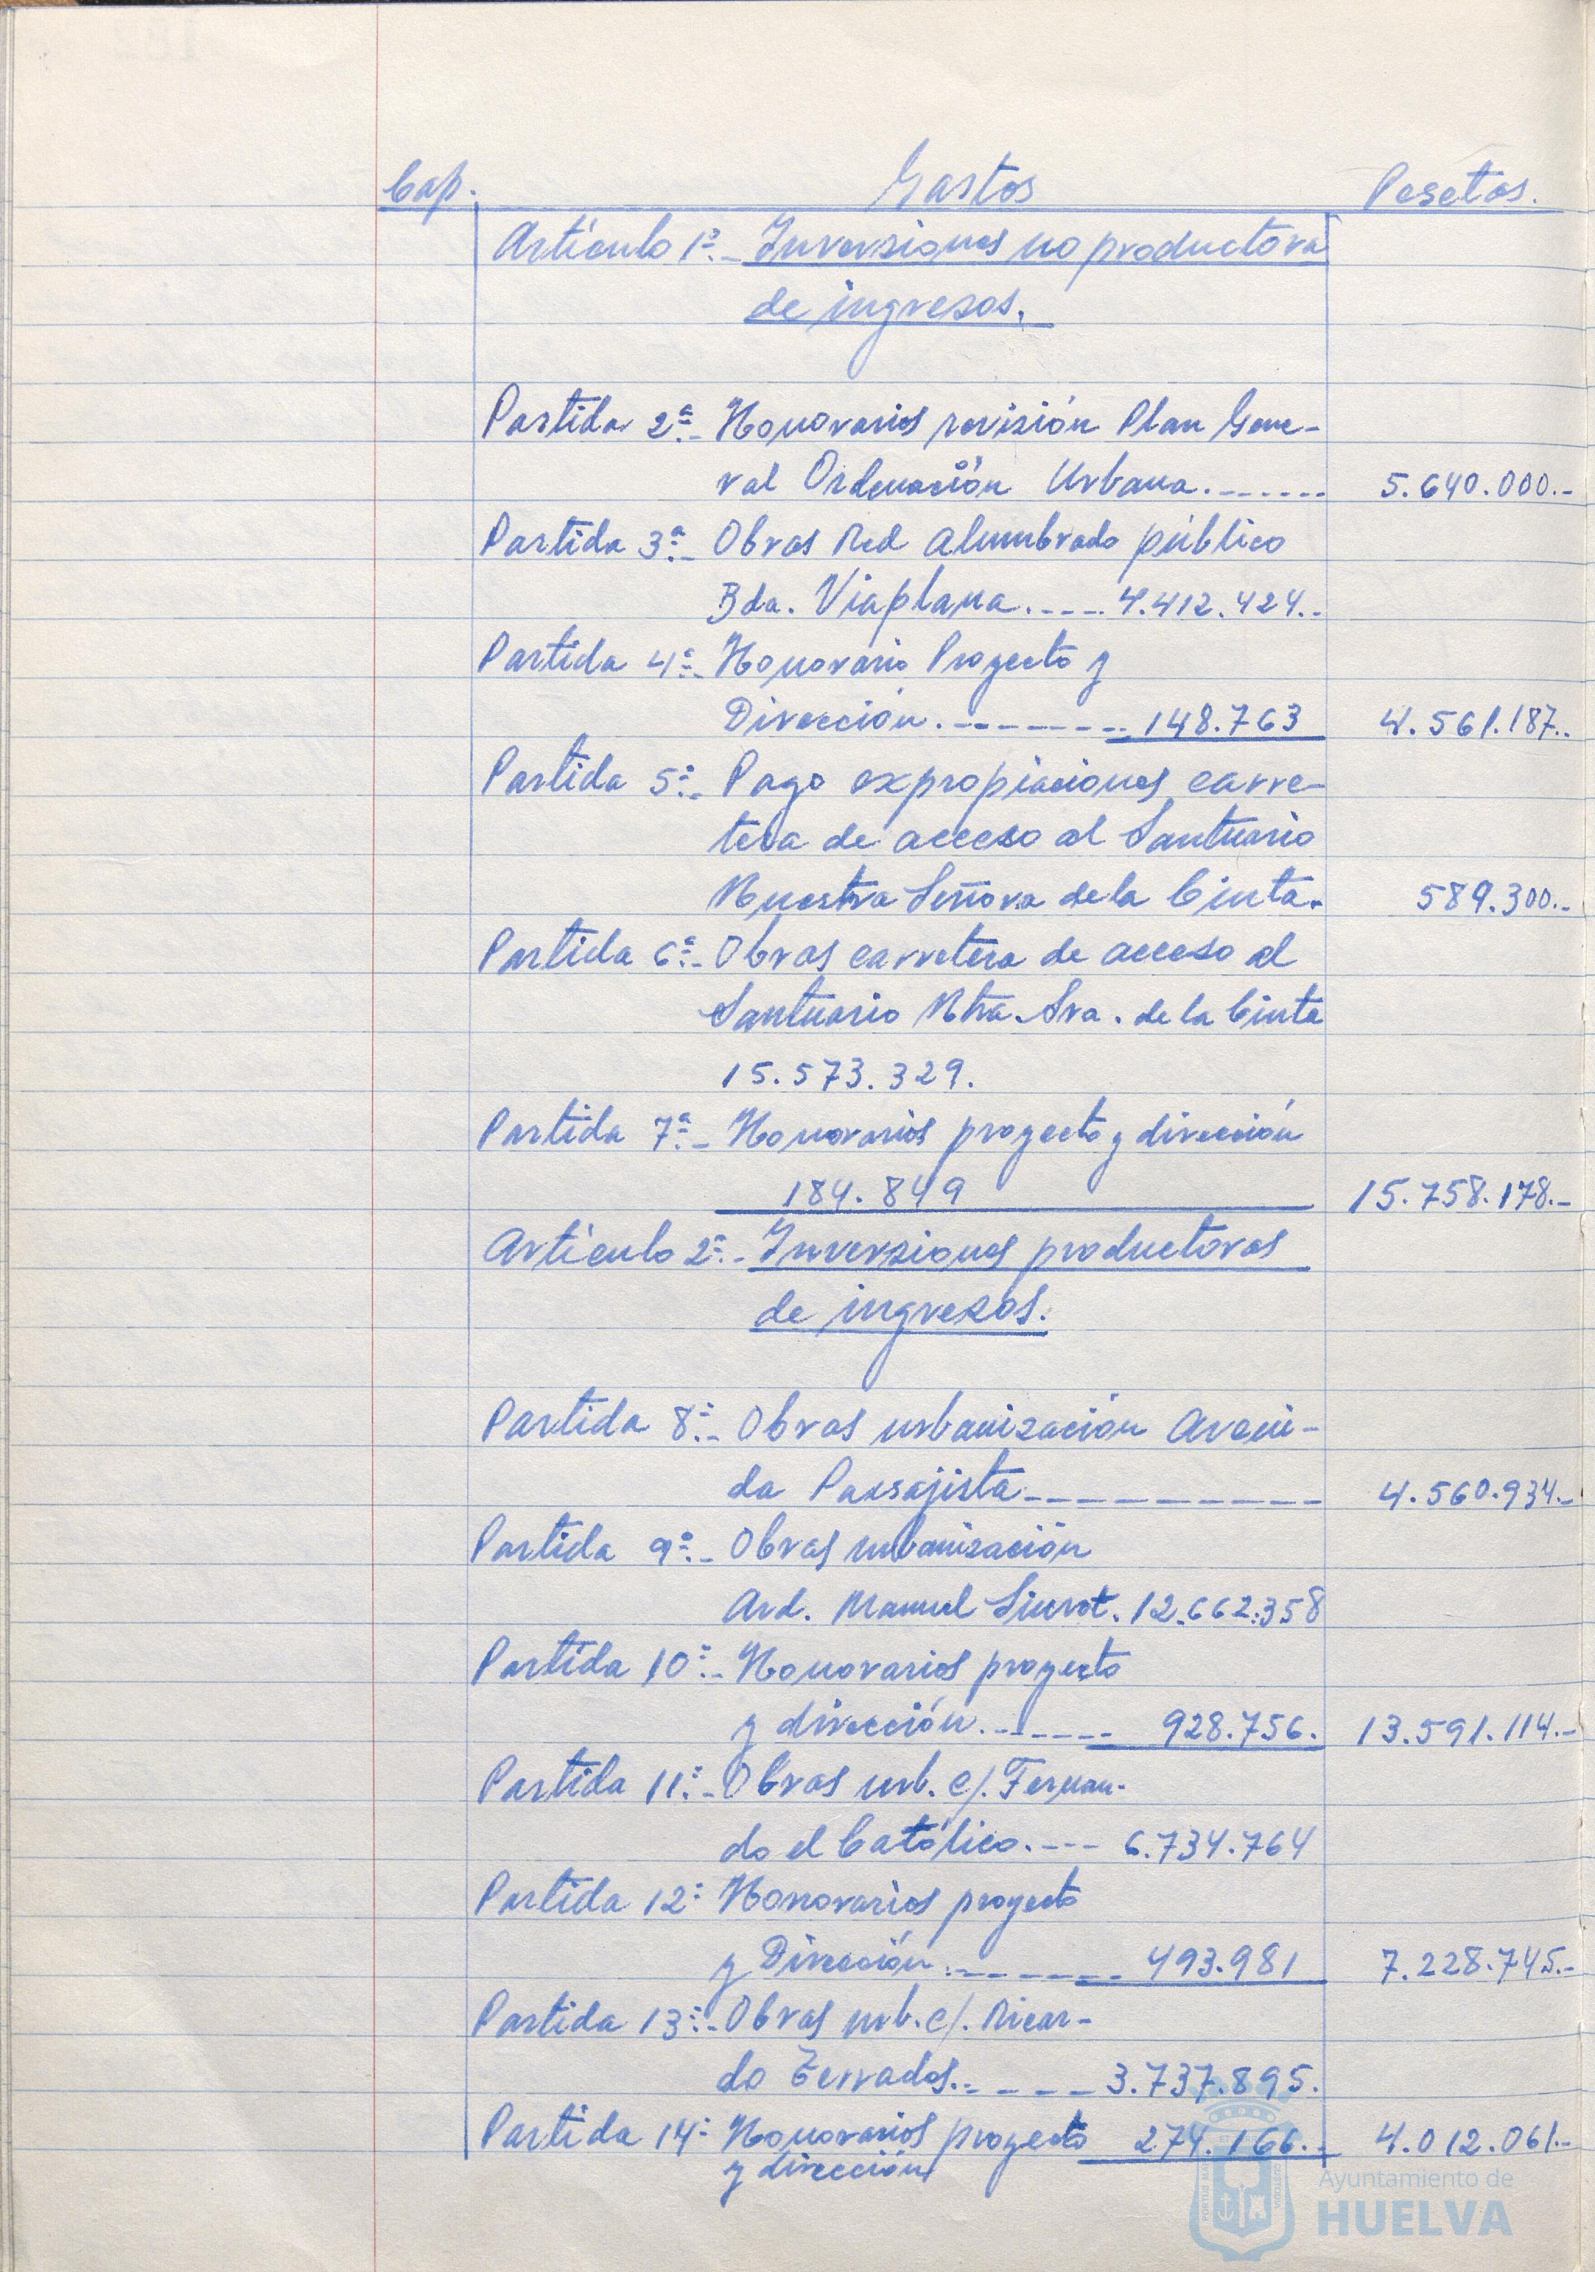 Cap. Gastos Pesetas.
Artículo 1º.- Inversiones no productora
de ingresos.
Partida 2ª.- Honorarios revisión Plan Gene-
ral Ordenación Urbana....... 5.640.000.-
Partida 3ª.- Obras Red alumbrado público
Bda. Viaplana..... 4.412.424.-
Partida 4ª.- Honorario Proyecto y
Dirección.--------- 148.763 4.561.187.-
Partida 5ª.- Pago expropiaciones carre-
tera de acceso al Santuario
Nuestra Señora de la Cinta. 589.300.-
Partida 6ª.- Obras carretera de acceso al
Santuario Ntra. Sra. de la Cinta
15.573.329.
Partida 7ª.- Honorarios proyecto y dirección
184.849 15.758.178.-
Artículo 2º.- Inversiones productoras
de ingresos.
Partida 8ª.- Obras urbanización Aveni-
da Paisajista---------- 4.560.934.-
Partida 9ª.- Obras urbanización
Avd. Manuel Siurot. 12.662.358
Partida 10ª.- Honorarios proyecto
y dirección.------ 928.756. 13.591.114.-
Partida 11ª.- Obras urb. c/. Fernan-
do el Católico.--- 6.734.764
Partida 12ª Honorarios proyecto
y Dirección.------- 493.981 7.228.745.-
Partida 13ª.- Obras urb. c/. Ricar-
do Terrades.------ 3.737.895.
Partida 14ª Honorarios proyecto 274.166.- 4.012.061.-
y dirección
Ayuntamiento de
HUELVA